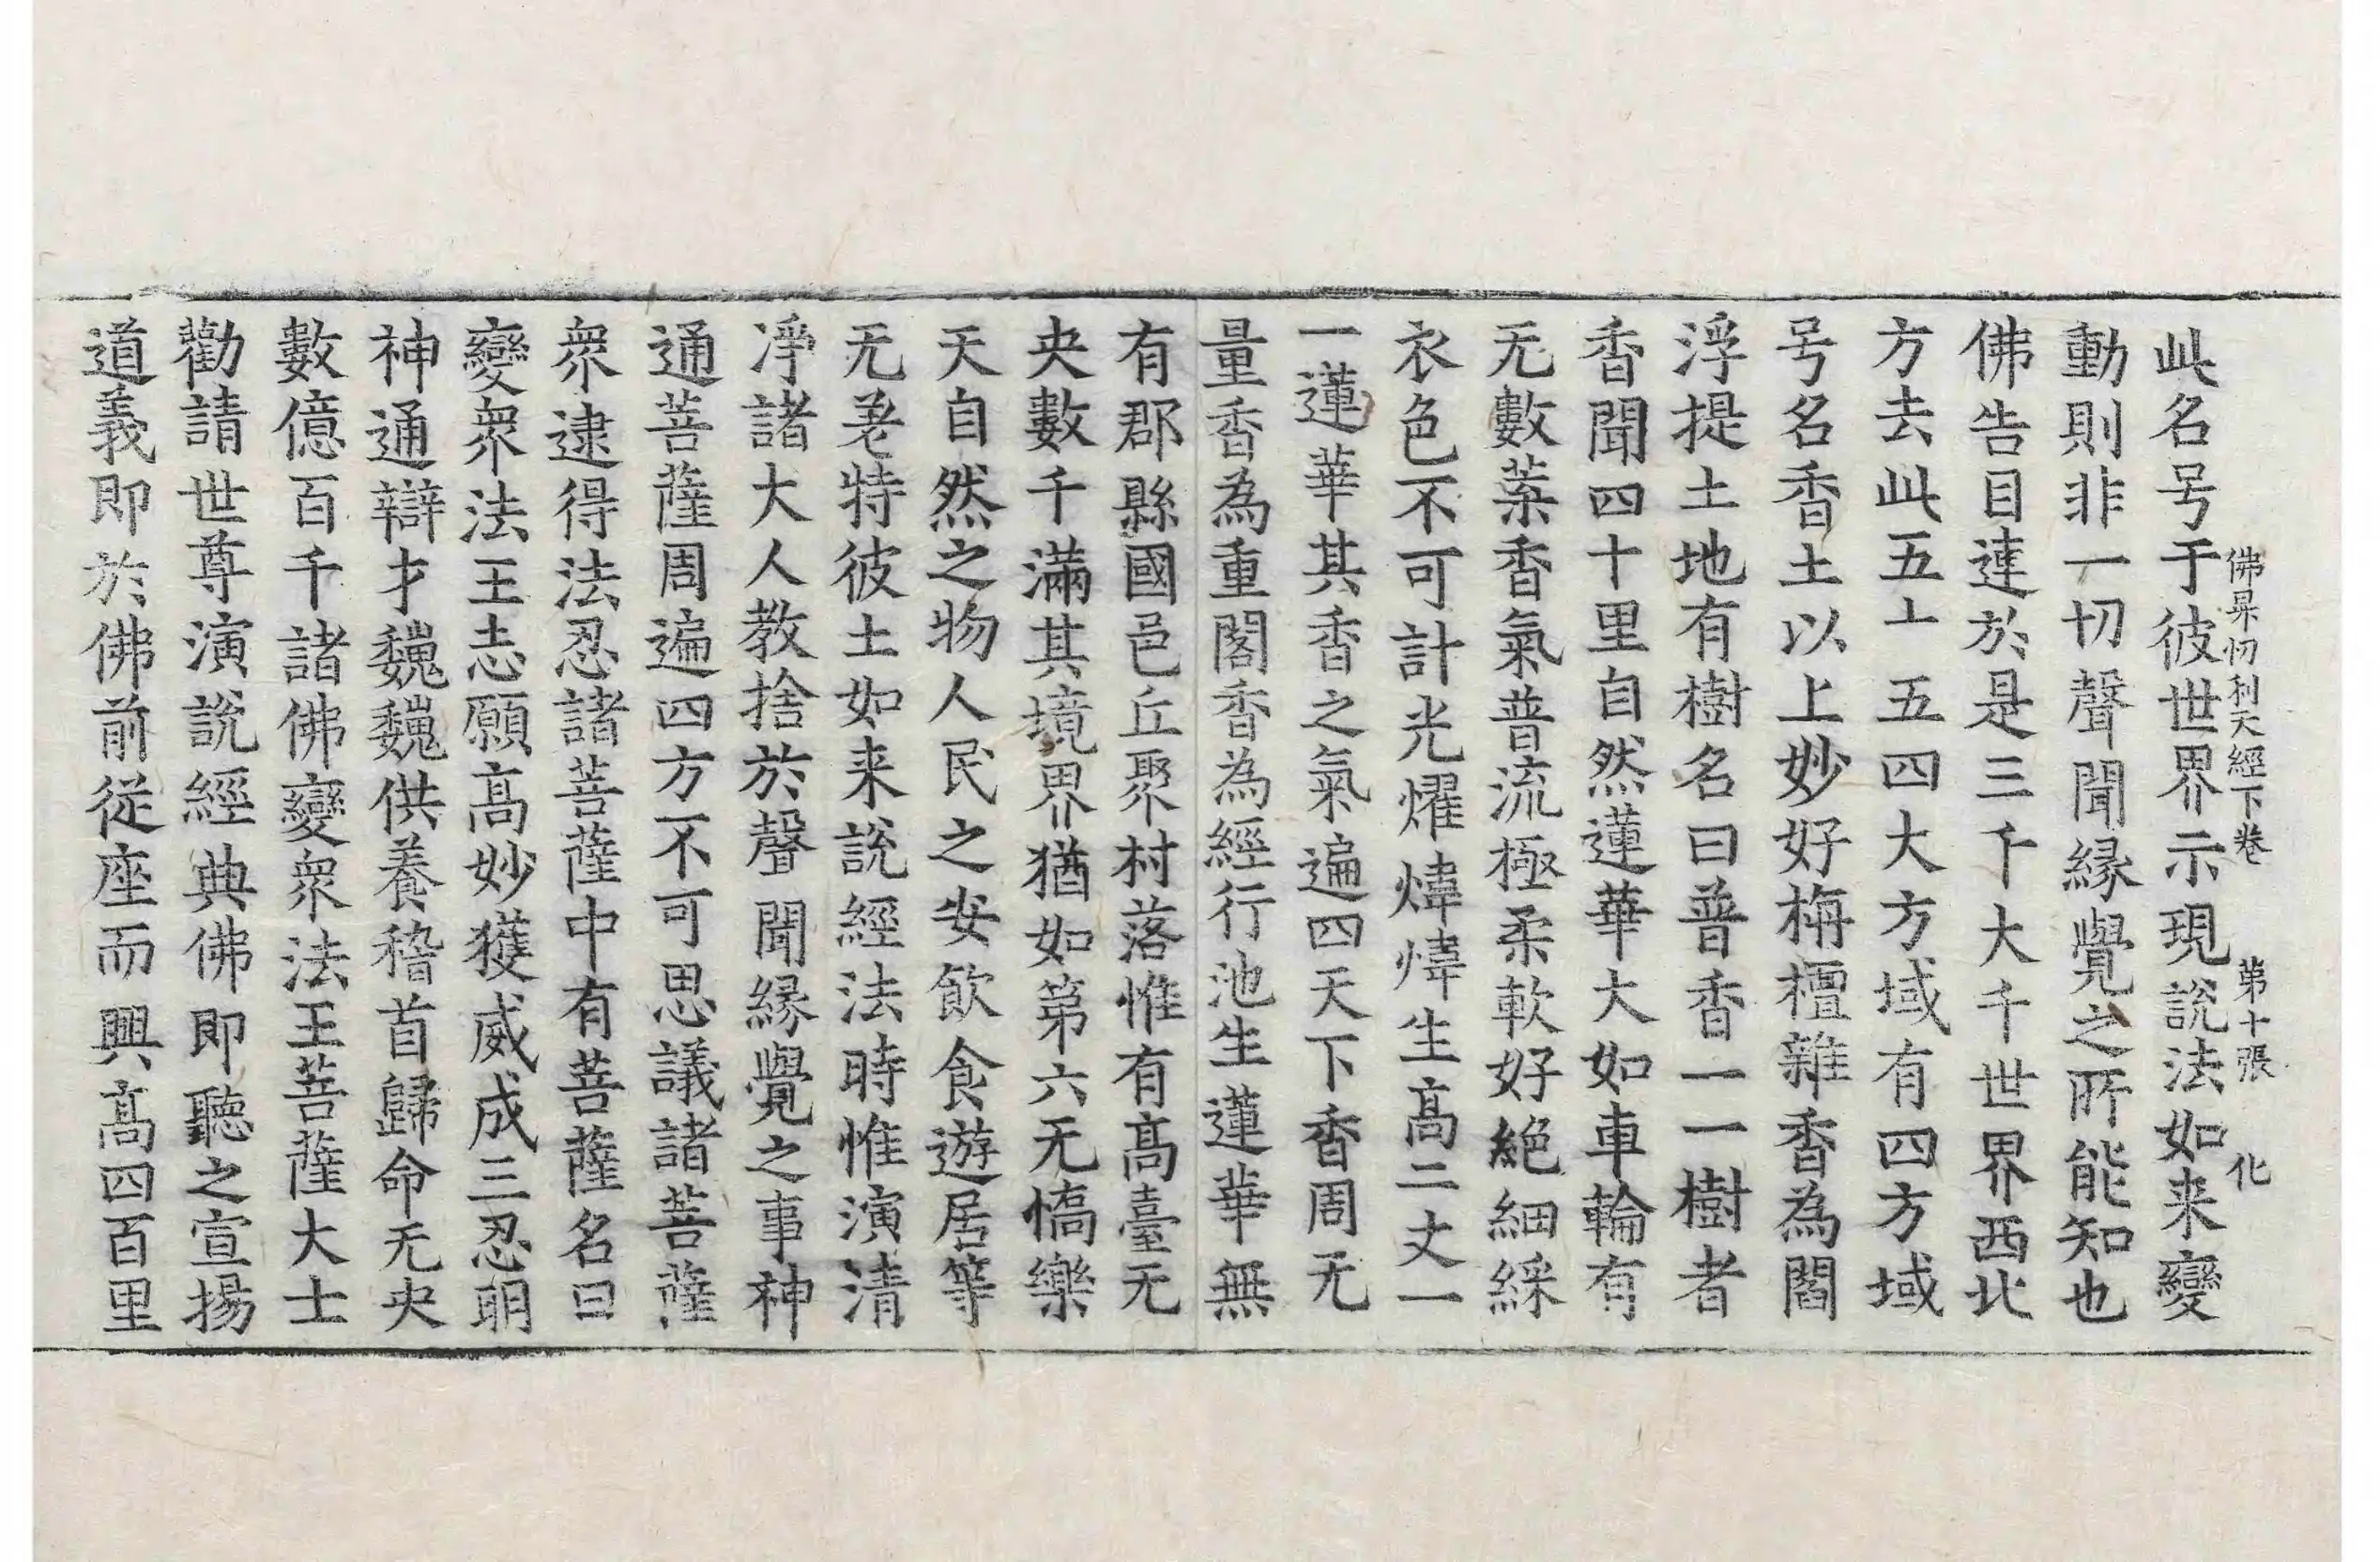 佛昇忉利天經下卷 第十張 化
此名号于彼世界示現說法如来變
動則非一切聲聞緣覺之所能知也
佛告目連於是三千大千世界西北
方去此五十五四大方域有四方域
号名香土以上妙好栴檀雜香為閻
浮提土地有樹名曰普香一一樹者
香聞四十里自然蓮華大如車輪有
无數葉香氣普流極柔軟好絶細綵
衣色不可計光燿煒煒生髙二丈一
一蓮華其香之氣遍四天下香周无
量香為重閣香為經行池生蓮華無
有郡縣國邑丘聚村落惟有髙臺无
央數千滿其境界猶如第六无憍樂
天自然之物人民之安飲食遊居等
无差特彼土如来說經法時惟演清
淨諸大人教捨於聲聞緣覺之事神
通菩薩周遍四方不可思議諸菩薩
衆逮得法忍諸菩薩中有菩薩名曰
變衆法王志願髙妙獲威成三忍明
神通辯才巍巍供養稽首歸命无央
數億百千諸佛變衆法王菩薩大士
勸請世尊演說經典佛即聽之宣揚
道義即於佛前從座而興髙四百里